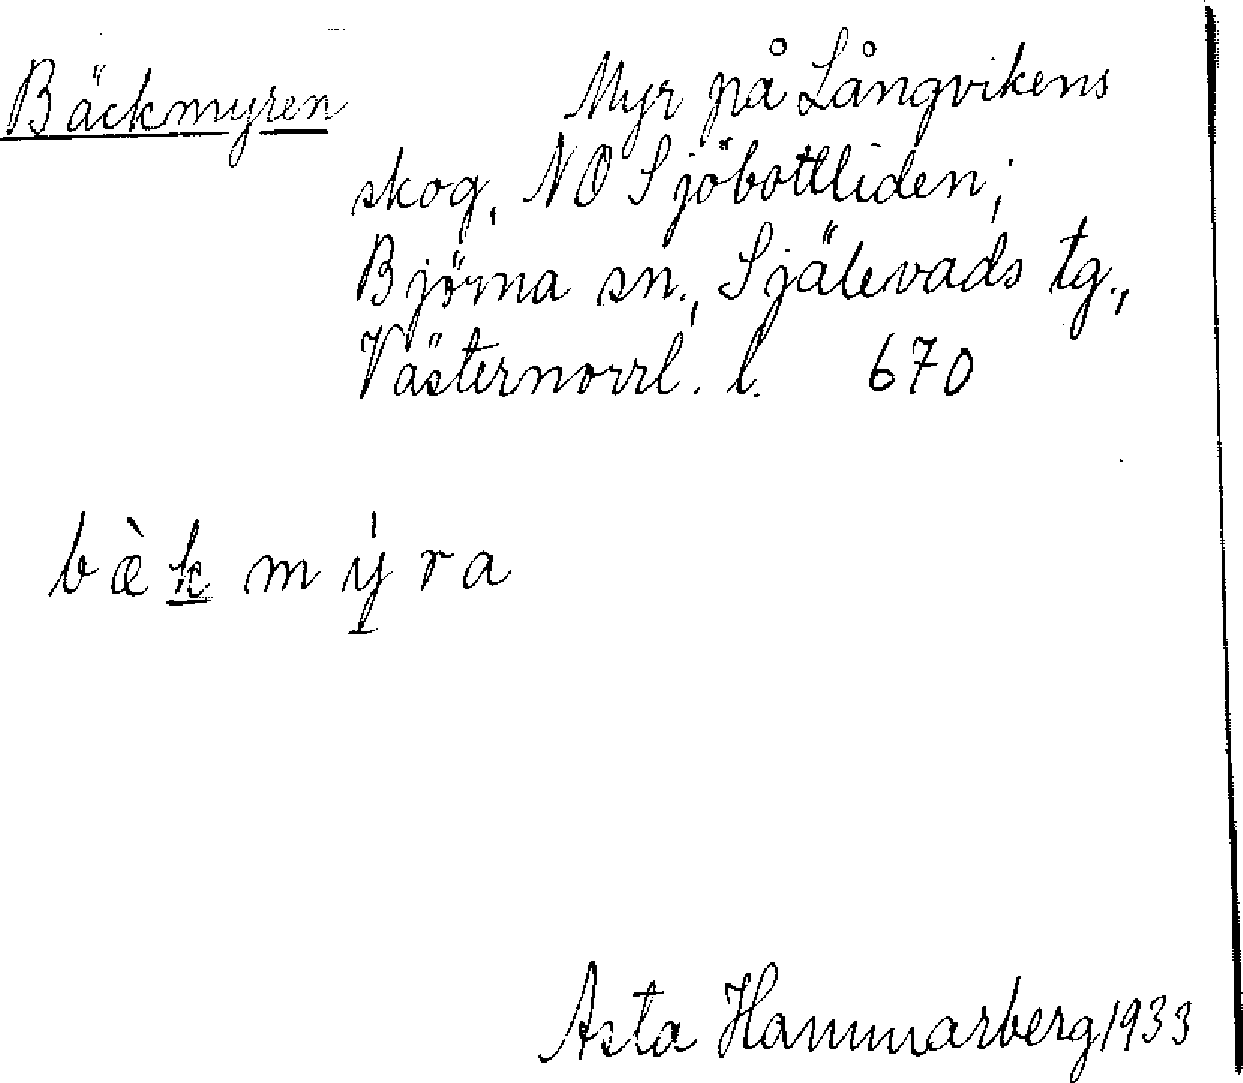 Bäckmyren Myr på Långvikens
skog, NO Sjöbottliden;
Björna sn., Själevads tg.,
Västernorrl. l. 670
bæ̀k mýra
Asta Hammarberg 1933